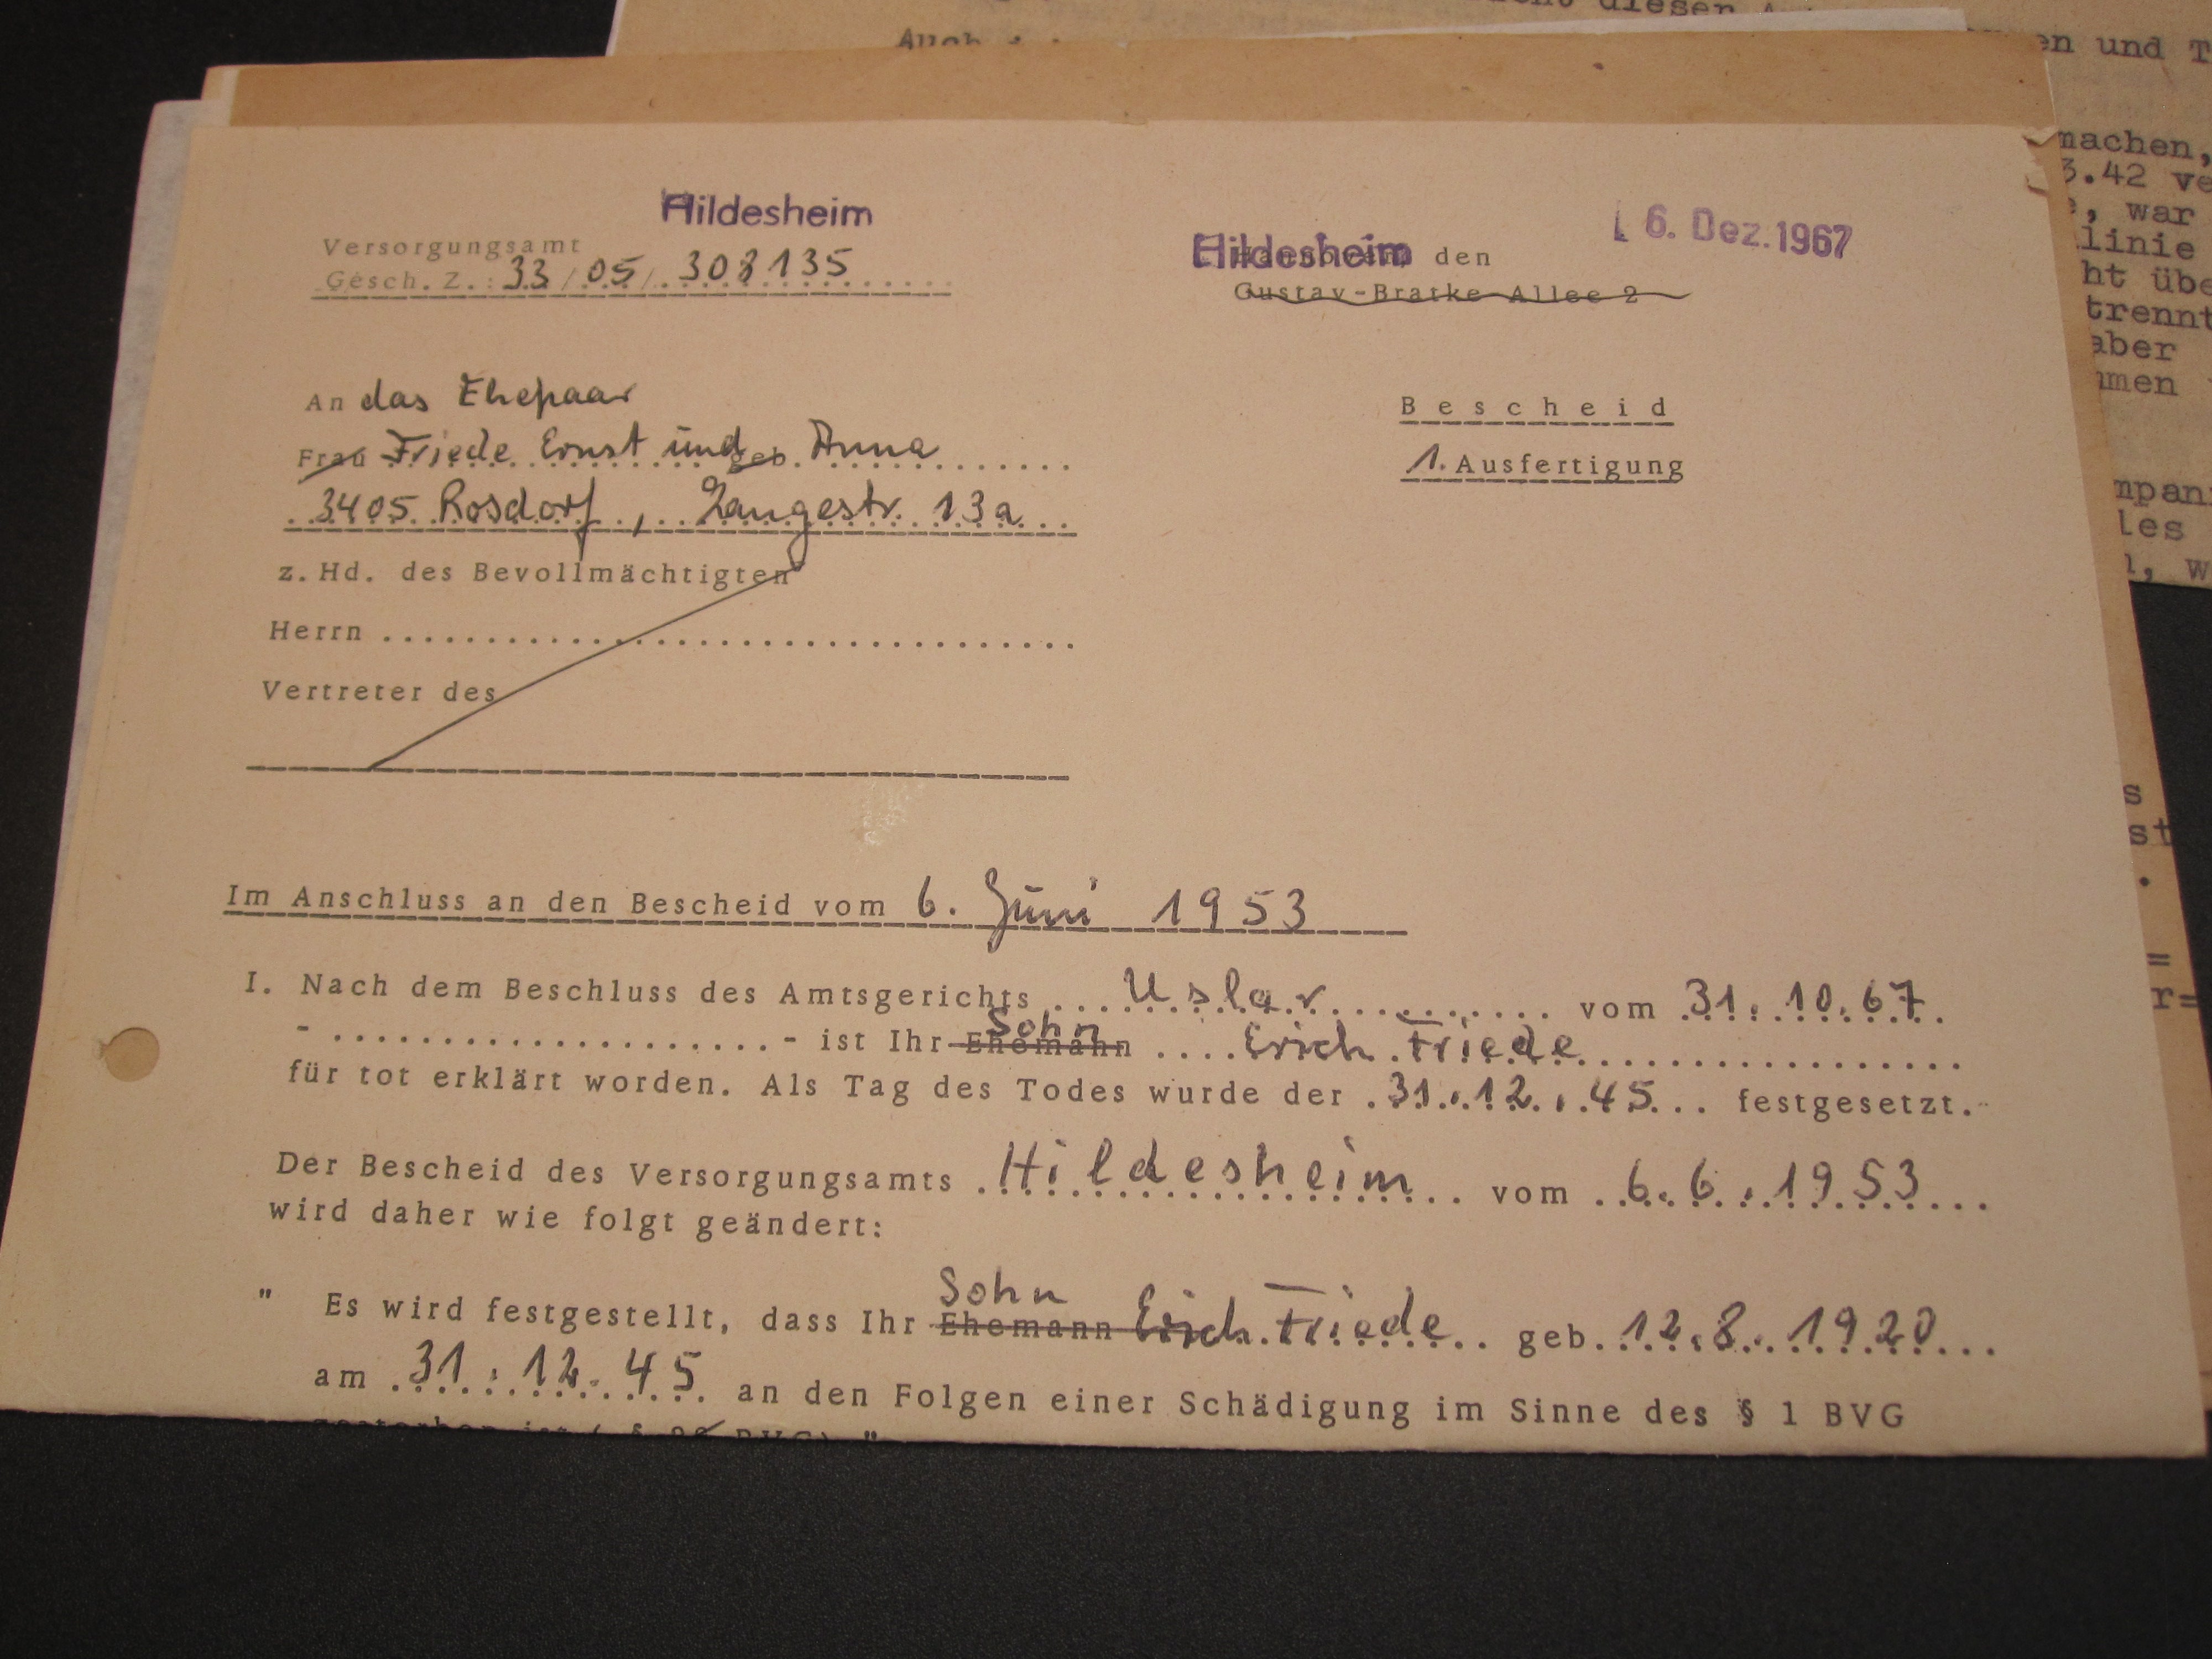 dieser
Auch
en und T
machen,
3.42 ve
, war
linie
ht übe
trennt
aber
mmen
mpan
les
, w
s
st
.
=
r=
Hildesheim
Versorgungsamt
Gesch. Z.: 33/05/. 308135
Hildesheim den 6. Dez. 1967
Gustav-Bratke-Allee 2
An das Ehepaar
Frau Friede Ernst und geb. Anna
3405 Rosdorf, Langestr. 13a
z. Hd. des Bevollmächtigten
Herrn
Vertreter des
Bescheid
1. Ausfertigung
Im Anschluss an den Bescheid vom 6. Juni 1953
I. Nach dem Beschluss des Amtsgerichts Uslar vom 31.10.67
Sohn
- ........ - ist Ihr Ehemann Erich Friede
für tot erklärt worden. Als Tag des Todes wurde der 31.12.45 festgesetzt.
Der Bescheid des Versorgungsamts Hildesheim vom 6.6.1953
wird daher wie folgt geändert:
Sohn
" Es wird festgestellt, dass Ihr Ehemann Erich Friede geb. 12.8.1920
am 31.12.45 an den Folgen einer Schädigung im Sinne des § 1 BVG